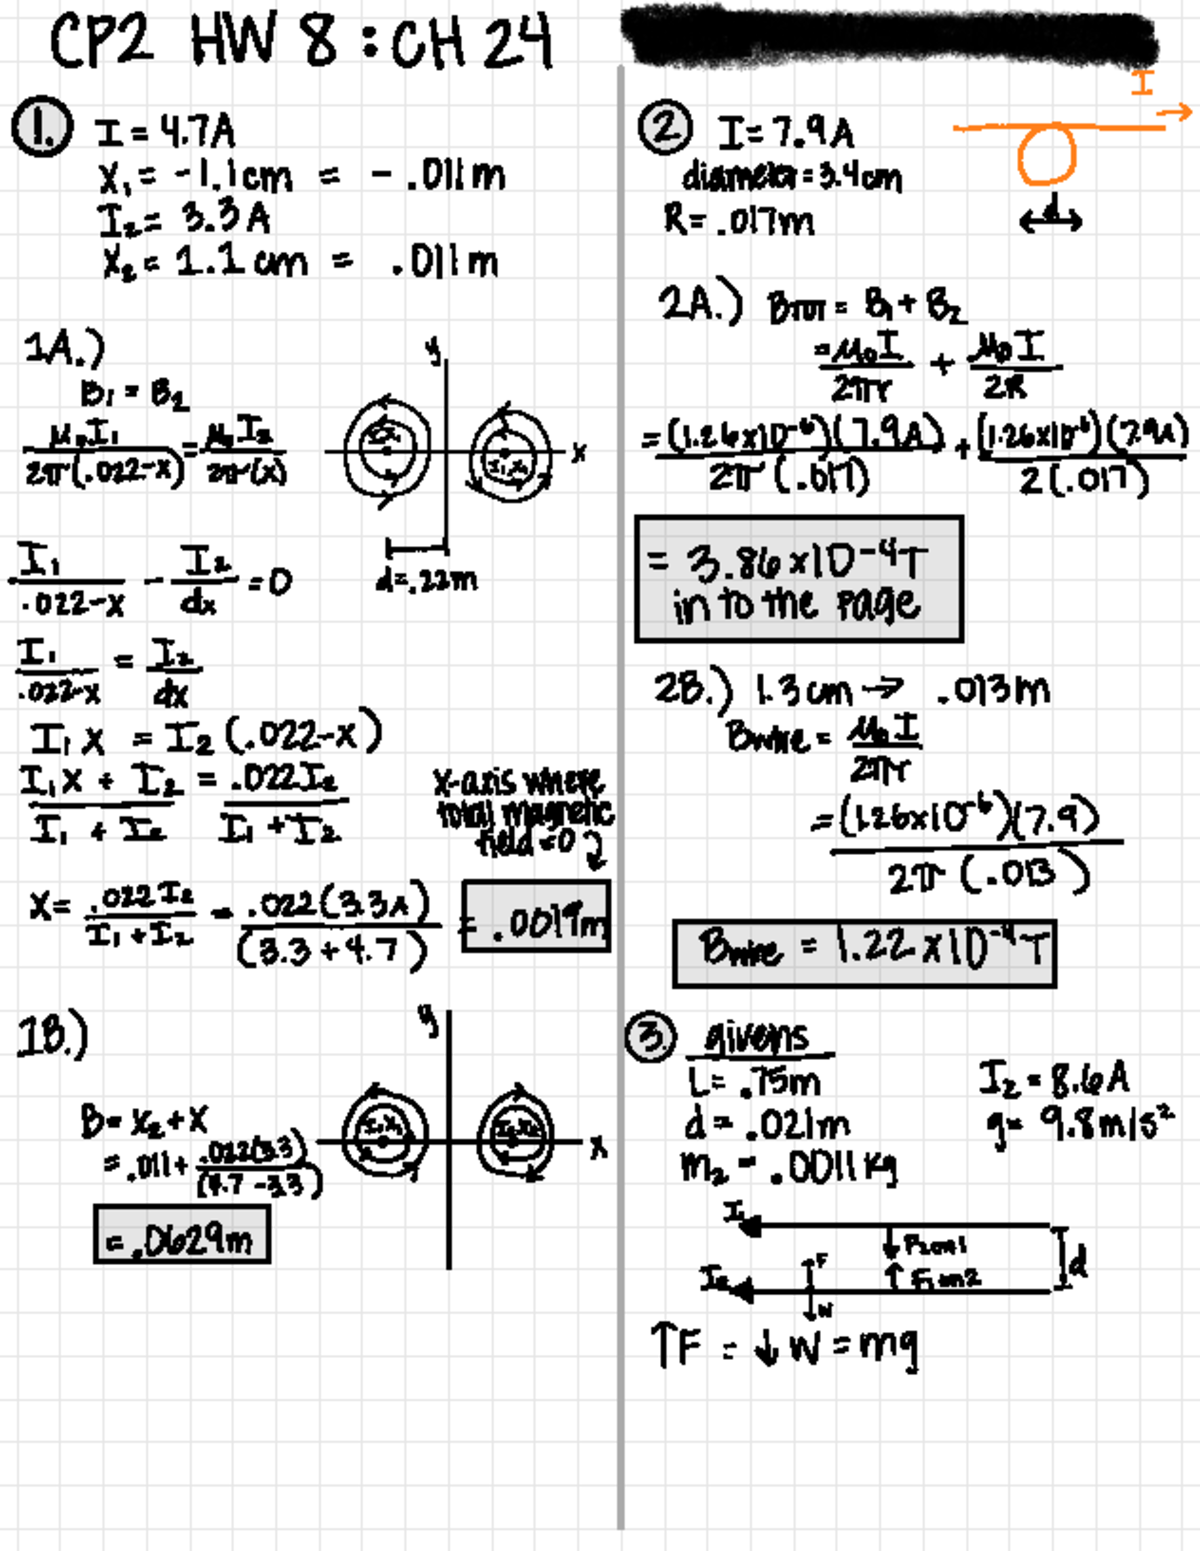 CP2 HW 8 : CH 24
1. I = 4.7A
X₁ = -1.1cm = -.011m
I₂ = 3.3A
X₂ = 1.1cm = .011m
1A.)
B₁ = B₂
μ₀I₁/2π(.022-x) = μ₀I₂/2π(x)
y
x
d=.22m
I₁/.022-x - I₂/dx = 0
I₁/.022-x = I₂/dx
I₁x = I₂(.022-x)
I₁x + I₂/I₁ + I₂ = .022I₂/I₁ + I₂
x-axis where
total magnetic
field = 0
X = .022I₂/I₁+I₂ = .022(3.3A)/(3.3+4.7) = .0019m
1B.)
y
x
I₁X₁
B = X₂ + X
= .011 + .022(3.3)/(4.7-3.3)
= .0629m
2 I = 7.9A
diameter = 3.4cm
R = .017m
I →
d
2A.) BTOT = B₁ + B₂
= μ₀I/2πr + μ₀I/2R
= (1.26x10⁻⁶)(7.9A)/2π(.017) + (1.26x10⁻⁶)(7.9A)/2(.017)
= 3.86x10⁻⁴T
in to the page
2B.) 1.3cm → .013m
Bwire = μ₀I/2πr
= (1.26x10⁻⁶)(7.9)/2π(.013)
Bwire = 1.22x10⁻⁴T
3. givens
L = .75m I₂ = 8.6A
d = .021m g = 9.8m/s²
m₂ = .0011kg
I₁
F₂on1
F₁on2
d
I₂
F
W
↑F = ↓W = mg